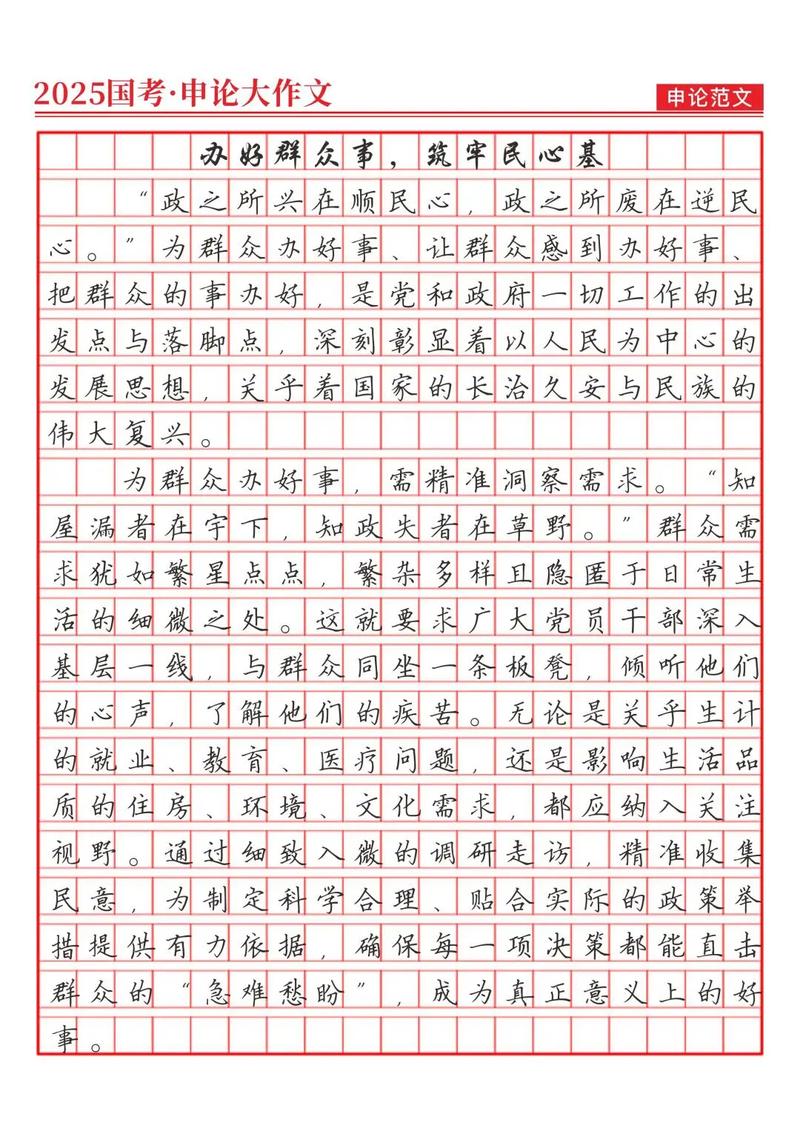 2025国考·申论大作文
申论范文
办好群众事，筑牢民心基
“政之所兴在顺民心，政之所废在逆民
心。”为群众办好事、让群众感到办好事、
把群众的事办好，是党和政府一切工作的出
发点与落脚点，深刻彰显着以人民为中心的
发展思想，关乎着国家的长治久安与民族的
伟大复兴。
为群众办好事，需精准洞察需求。“知
屋漏者在宇下，知政失者在草野。”群众需
求犹如繁星点点，繁杂多样且隐匿于日常生
活的细微之处。这就要求广大党员干部深入
基层一线，与群众同坐一条板凳，倾听他们
的心声，了解他们的疾苦。无论是关乎生计
的就业、教育、医疗问题，还是影响生活品
质的住房、环境、文化需求，都应纳入关注
视野。通过细致入微的调研走访，精准收集
民意，为制定科学合理、贴合实际的政策举
措提供有力依据，确保每一项决策都能直击
群众的“急难愁盼”，成为真正意义上的好
事。